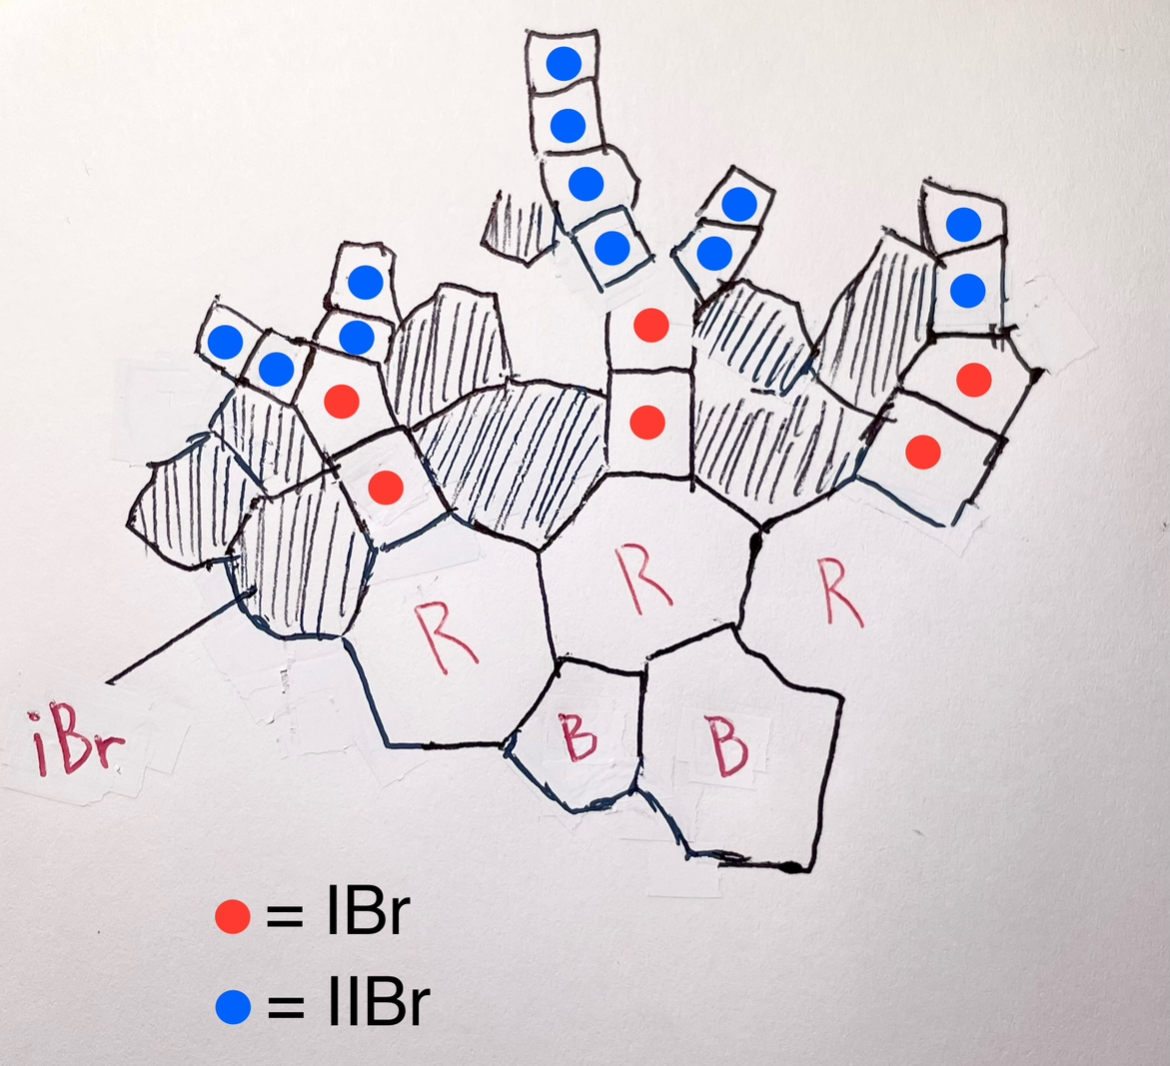 R
R
R
B
B
iBr
= IBr
= IIBr